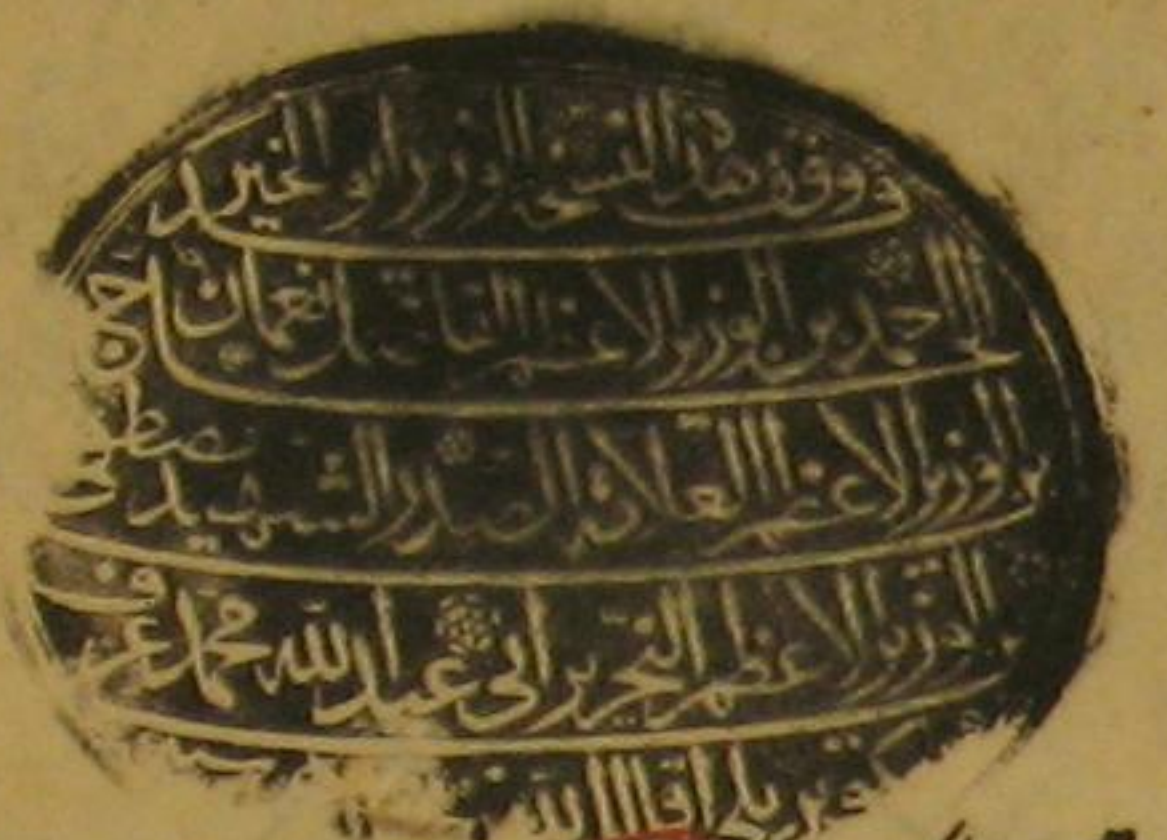 قد وقف هذه النسخة الوزير ابو الخير
الحاج احمد بن الوزير الاعظم الفاضل نعمان
بن الوزير الاعظم العلامة الصدر الشهيد مصطفى
بن الوزير الاعظم النحرير ابي عبد الله محمد عرف
بكوپريلي اقال الله